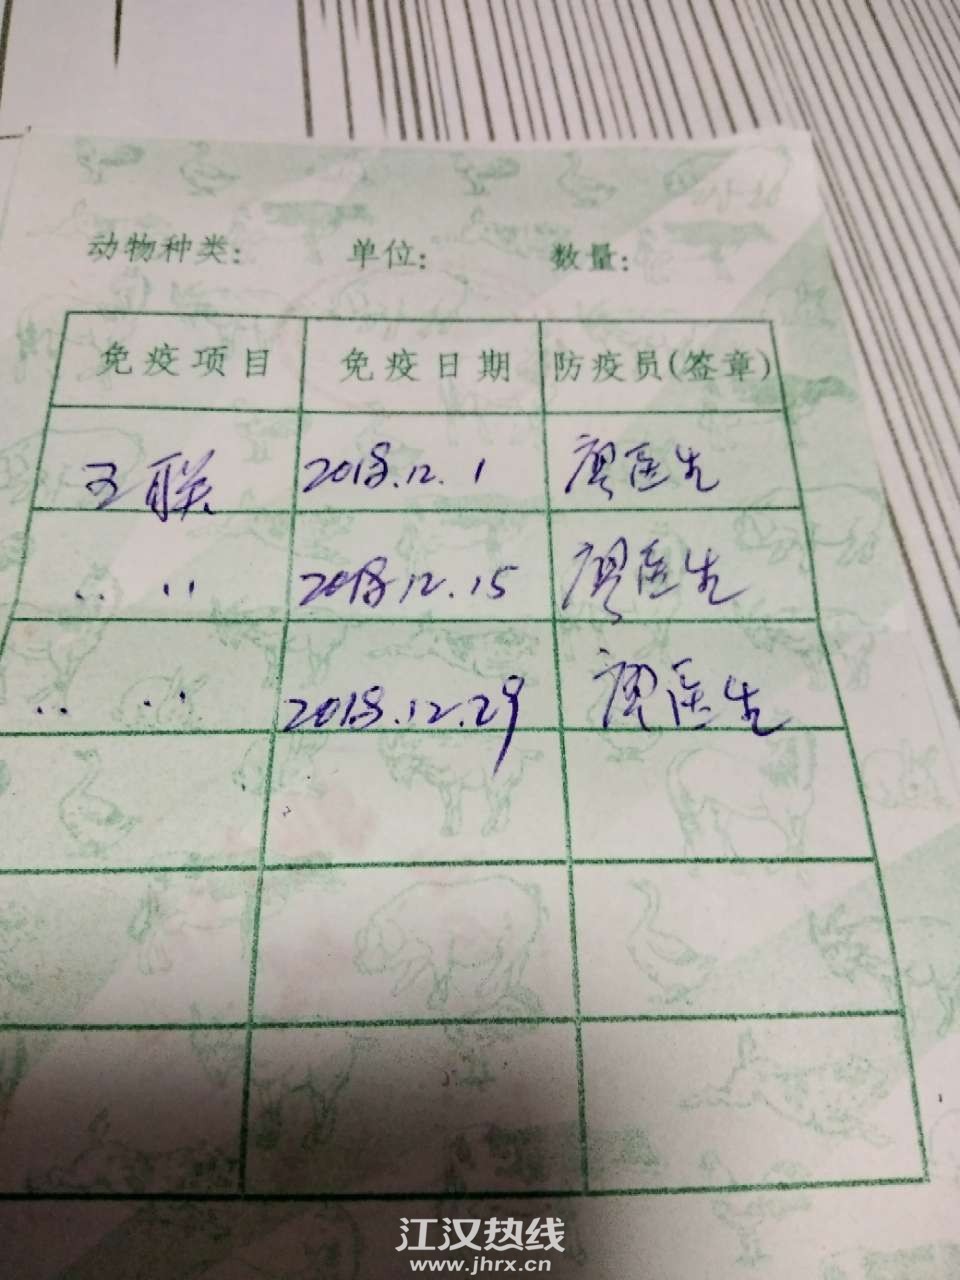 动物种类: 单位: 数量:
免疫项目 免疫日期 防疫员(签章)
五联 2018.12.1 廖医生
〃 〃 2018.12.15 廖医生
〃 〃 2018.12.29 廖医生
江汉热线
www.jhrx.cn